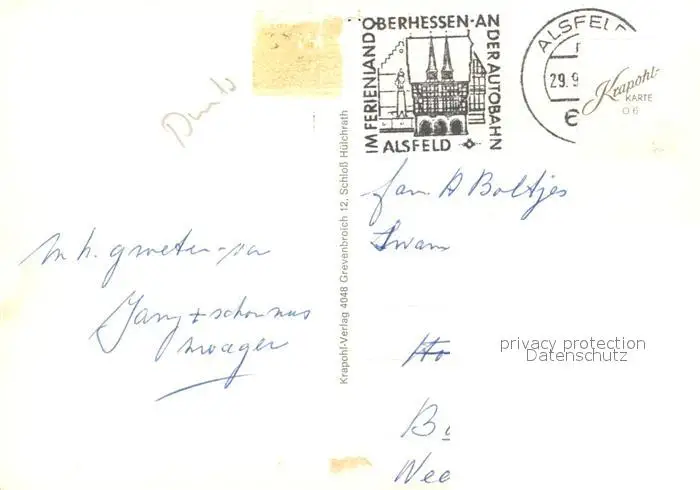 IM FERIENLAND OBERHESSEN·AN DER AUTOBAHN
ALSFELD
ALSFELD
29.9
Krapohl-
KARTE
06
Krapohl-Verlag 4048 Grevenbroich 12, Schloß Hülchrath
fam A Boltjes
m h. groeten van
Jany + schoonus
zwager
privacy protection
Datenschutz
Ho
B
Nee